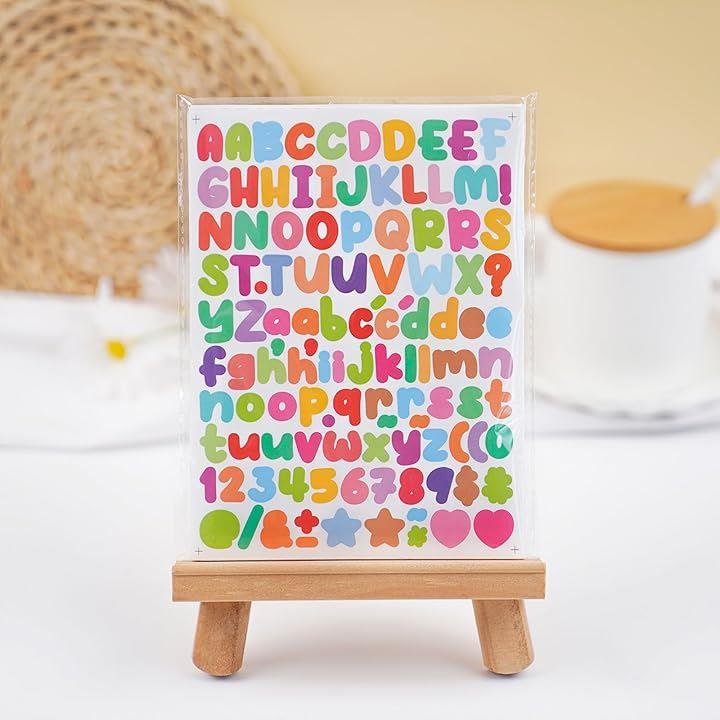 AABCCDDEEF
GHHIIJKLLM!
NNOOPQRRS
ST.TUUVWX?
YZaabććddeo
fghhiijkllmn
nooop.qr.rsst
tuuvwxỹz̃((0
1234567789
/&±